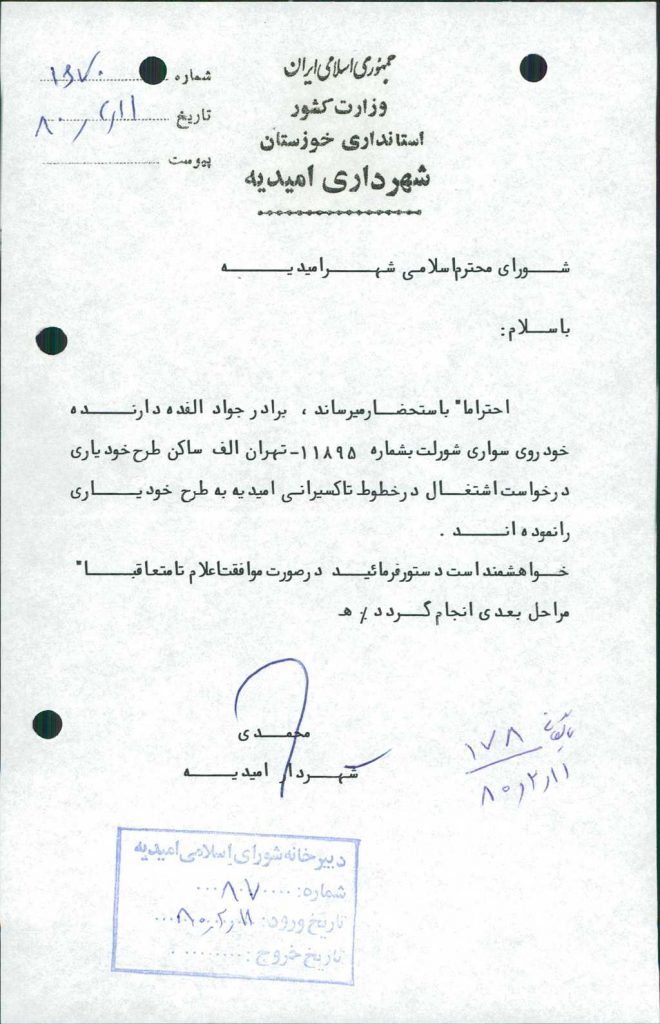 جمهوری اسلامی ایران
وزارت کشور
استانداری خوزستان
شهرداری امیدیه
شماره ۱۶۷۰
تاریخ ۸۰٫۲٫۱۱
پیوست
شورای محترم اسلامی شهر امیدیه
با سلام:
احتراما" باستحضار میرساند ، برادر جواد الفده دارنده
خودروی سواری شورلت بشماره ۱۱۸۹۵-تهران الف ساکن طرح خودیاری
درخواست اشتغال در خطوط تاکسیرانی امیدیه به طرح خودیاری
را نموده اند .
خواهشمند است دستور فرمائید در صورت موافقت اعلام تا متعاقبا"
مراحل بعدی انجام گردد ٪ ه
محمدی
شهردار امیدیه
بایگانی
۱۷۸
۸۰٫۲٫۱۱
دبیرخانه شورای اسلامی امیدیه
شماره: ۸۰۷
تاریخ ورود: ۸۰٫۲٫۱۱
تاریخ خروج: